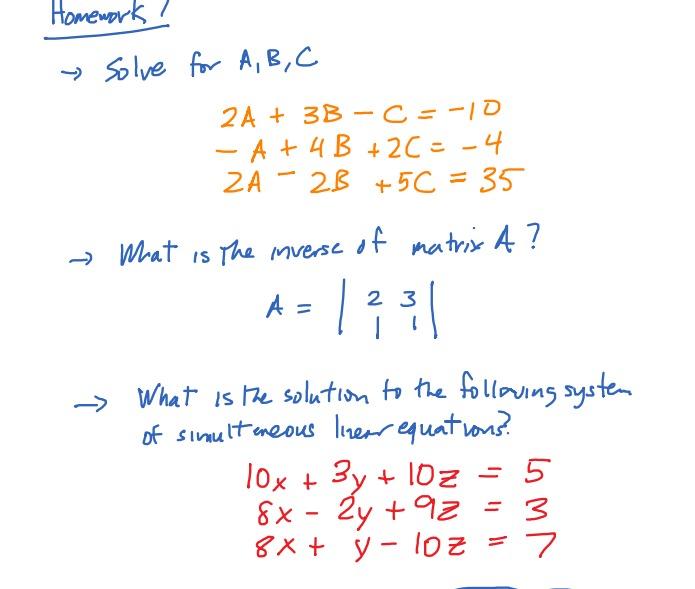 Homework!
→ Solve for A, B, C
2A + 3B - C = -10
- A + 4B + 2C = -4
2A - 2B + 5C = 35
→ What is the inverse of matrix A?
A = | 2 3 |
| 1 1 |
→ What is the solution to the following system
of simultaneous linear equations?
10x + 3y + 10z = 5
8x - 2y + 9z = 3
8x + y - 10z = 7